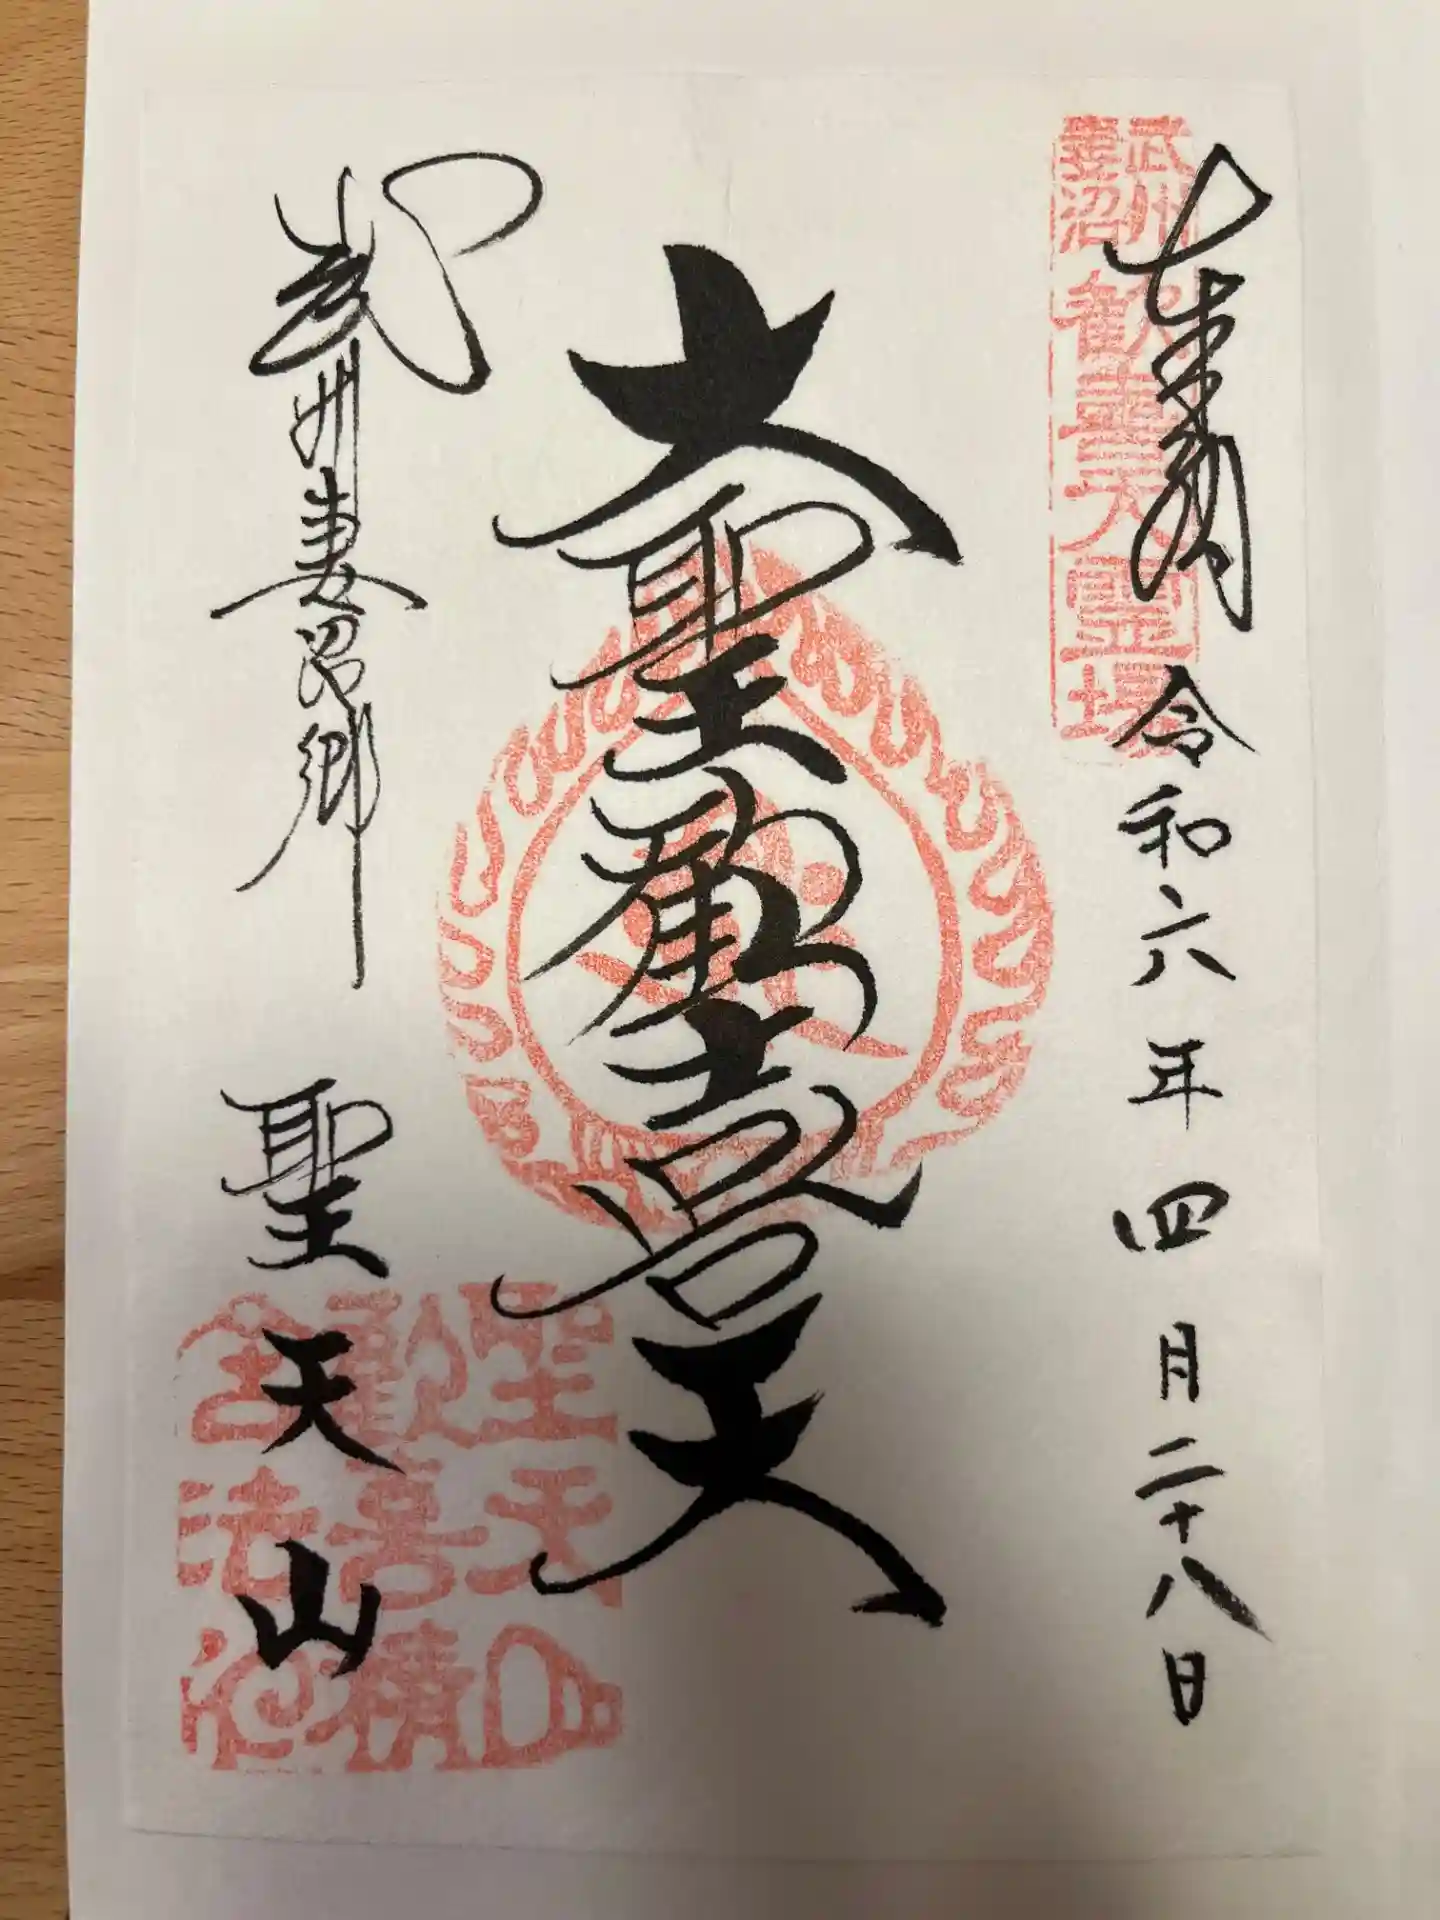 奉拝 令和六年四月二十八日
武州 妻沼 歓喜天霊場
大聖歓喜天
武州妻沼郷 聖天山